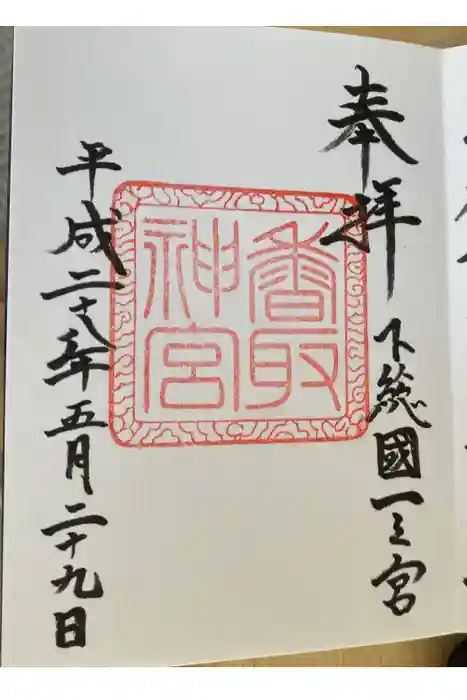 奉拝
下総國一之宮
香取
神宮
平成二十八年五月二十九日